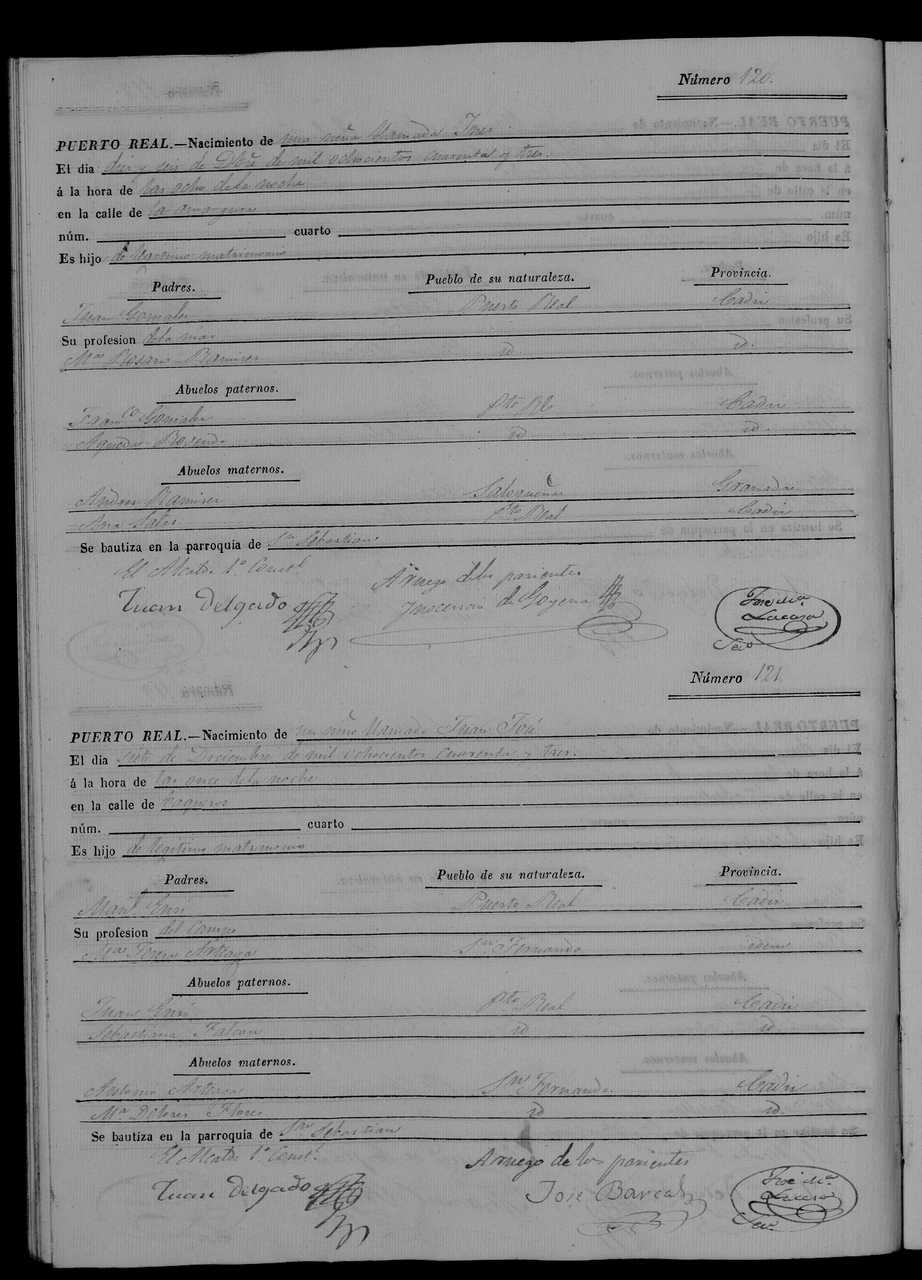 Número 120.
PUERTO REAL.—Nacimiento de una niña llamada Ines
El dia diez y seis de Dbre de mil ochocientos cuarenta y tres.
á la hora de las ocho de la noche
en la calle de la
núm. cuarto
Es hijo de legitimo matrimonio
Padres. Pueblo de su naturaleza. Provincia.
Juan Gonzalez Puerto Real Cadiz
Su profesion de la mar
Mª Rosario Ramirez id id.
Abuelos paternos.
Franco Gonzalez Pto Rl Cadiz
Agueda id id.
Abuelos maternos.
Andres Ramirez Granada
Ana Sales Pto Real Cadiz
Se bautiza en la parroquia de Sn Sebastian
El Alcalde 1º Const.
Aruego de los parientes
Juan Delgado
Inocencio de Goyena
José Mª
Lacaza
Secº
Número 121.
PUERTO REAL.—Nacimiento de un niño llamado Juan José
El dia siete de Diciembre de mil ochocientos cuarenta y tres.
á la hora de las once de la noche
en la calle de Vaqueros
núm. cuarto
Es hijo de legitimo matrimonio
Padres. Pueblo de su naturaleza. Provincia.
Manl Puerto Real Cadiz
Su profesion del campo
Teresa Arteaga Sn Fernando idem
Abuelos paternos.
Juan Pto Real Cadiz
Sebastiana Falcon id id.
Abuelos maternos.
Antonio Arteaga Sn Fernando Cadiz
Mª Dolores Flores id id.
Se bautiza en la parroquia de Sn Sebastian
El Alcalde 1º Const.
Aruego de los parientes
Juan Delgado
José
José Mª
Lacaza
Secº